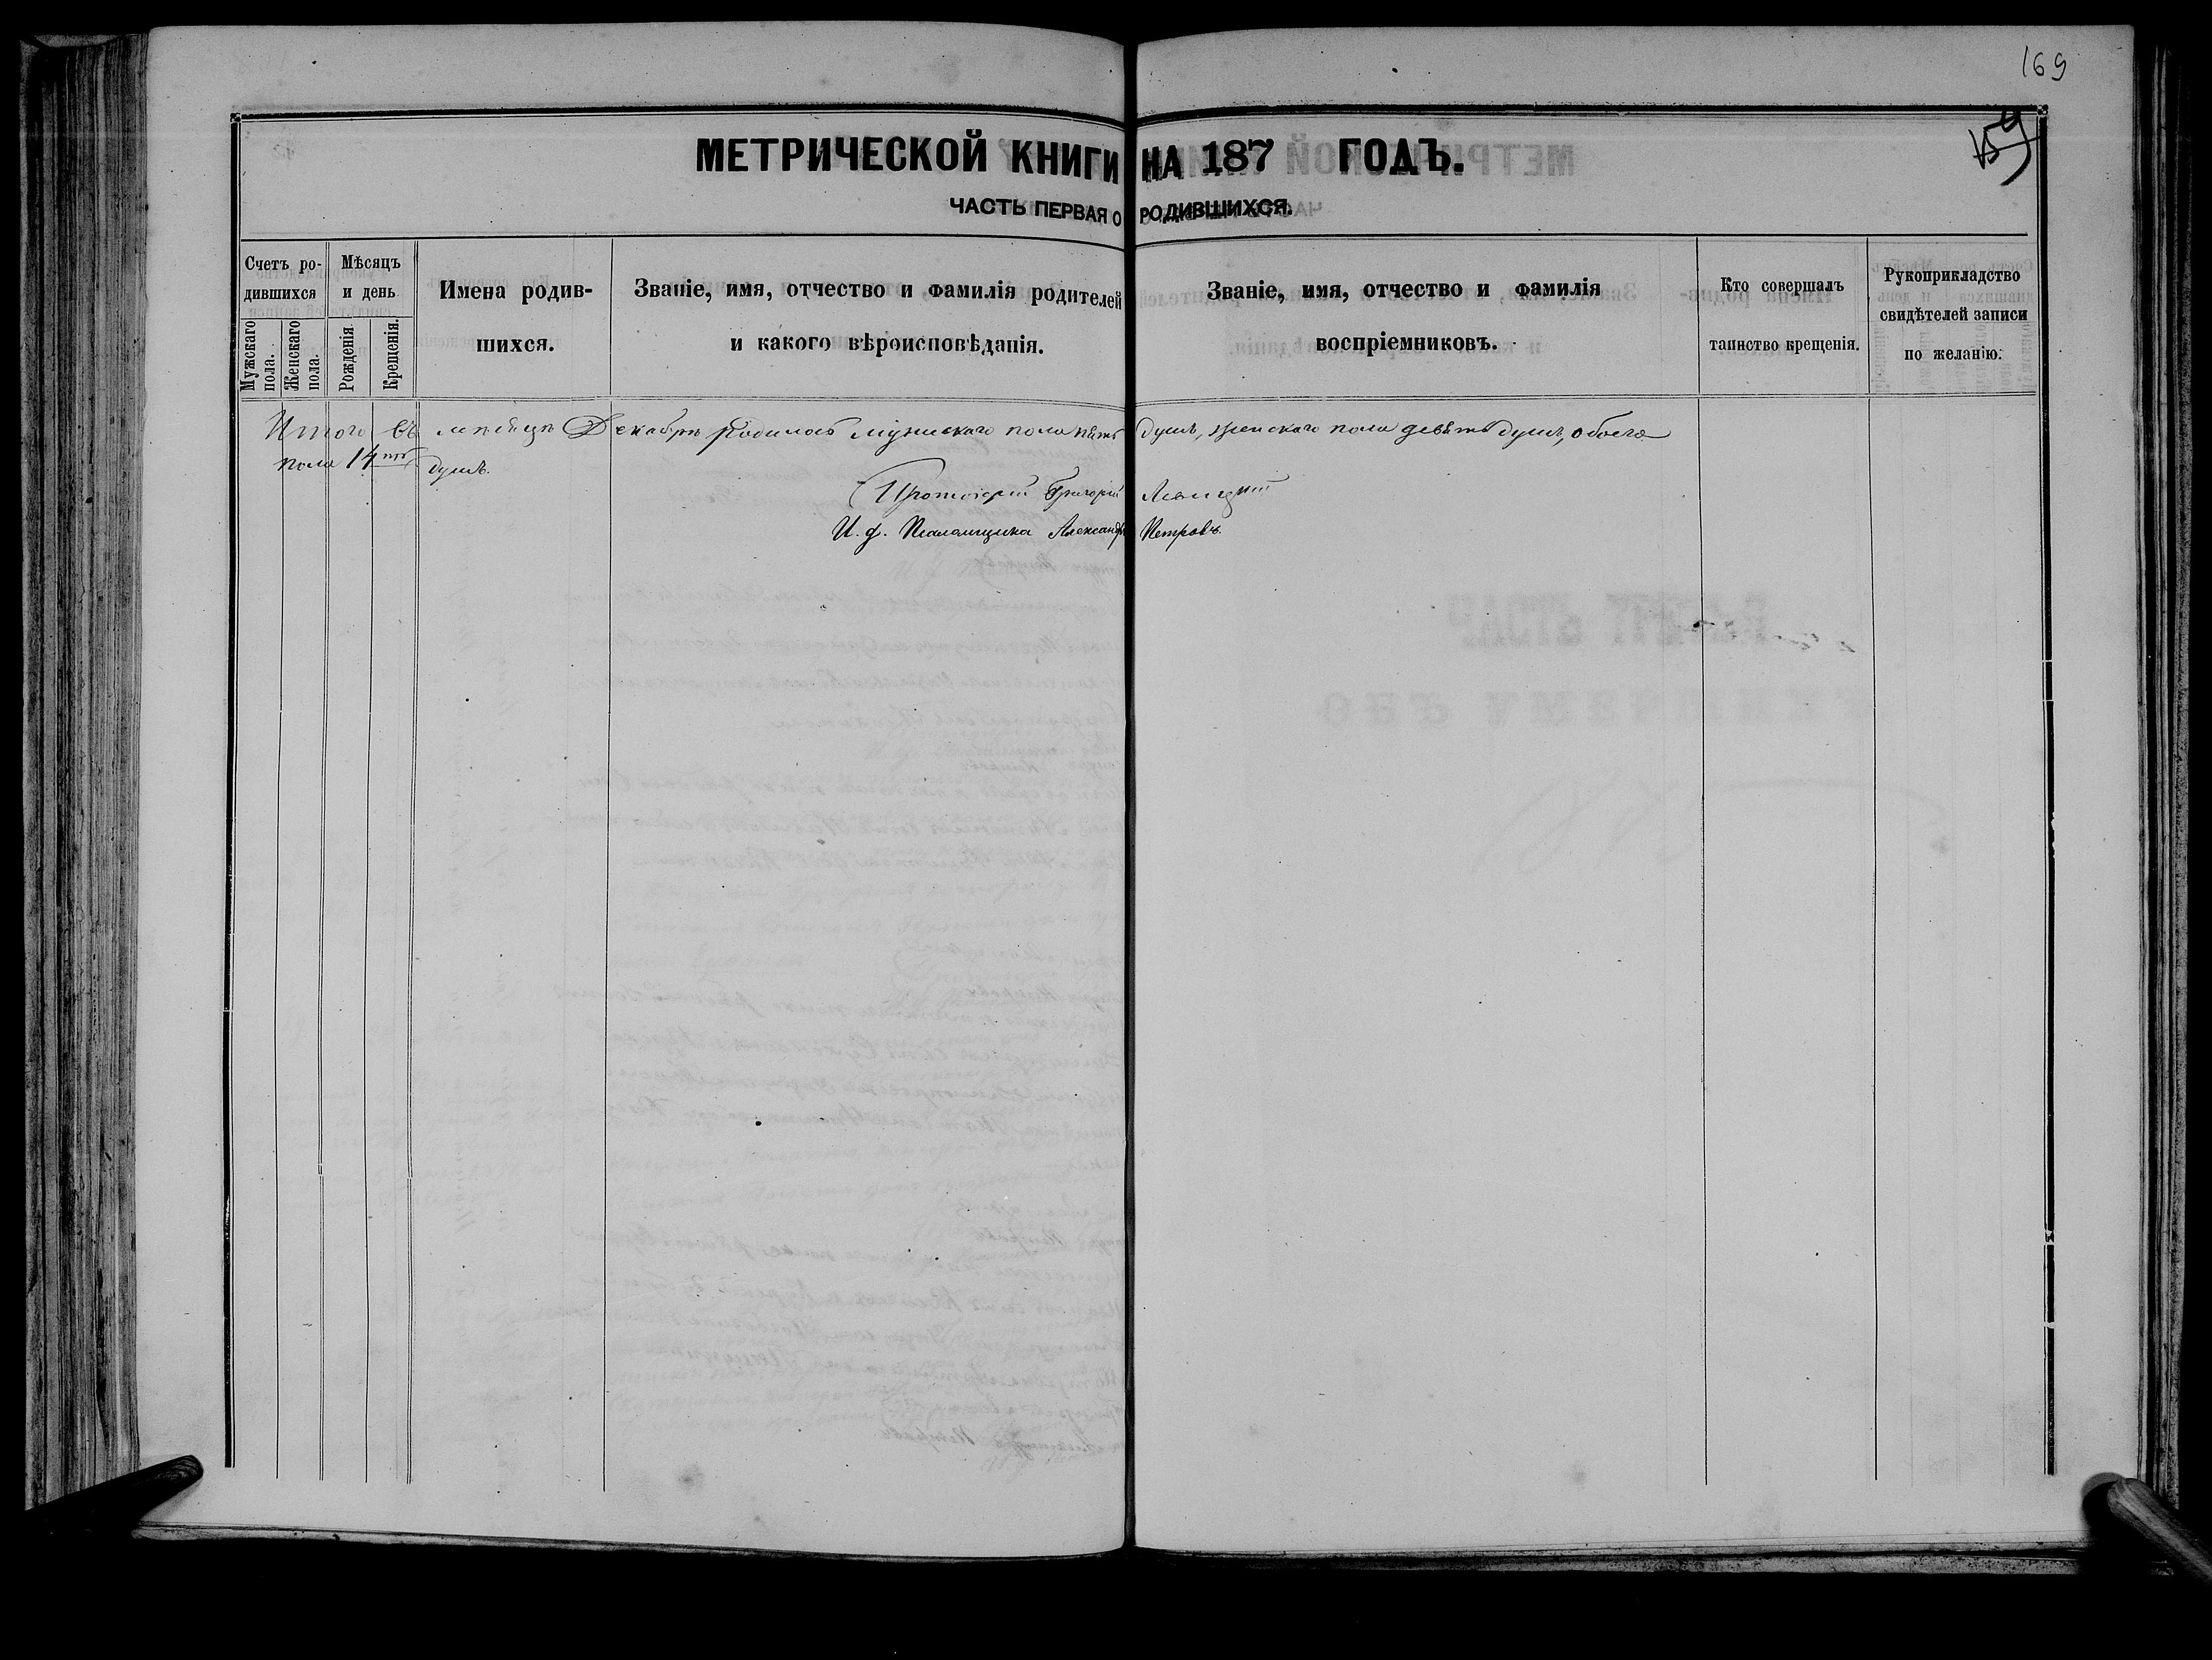 169
159
МЕТРИЧЕСКОЙ КНИГИ НА 187 ГОДЪ.
ЧАСТЬ ПЕРВАЯ О РОДИВШИХСЯ.
Счетъ ро-
дившихся
Мужскаго пола.
Женскаго пола.
Мѣсяцъ
и день
Рожденія
Крещенія.
Имена родив-
шихся.
Званіе, имя, отчество и фамилія родителей
и какого вѣроисповѣданія.
Званіе, имя, отчество и фамилія
воспріемниковъ.
Кто совершалъ
таинство крещенія.
Рукоприкладство
свидѣтелей записи
по желанію.
Итого въ мѣсяцѣ Декабрѣ родилось мужескаго пола пять душъ, женскаго пола девять душъ, обоего
пола 14ть душъ.
Протоіерей Григорій
И. д. Псаломщика Александръ Петровъ.